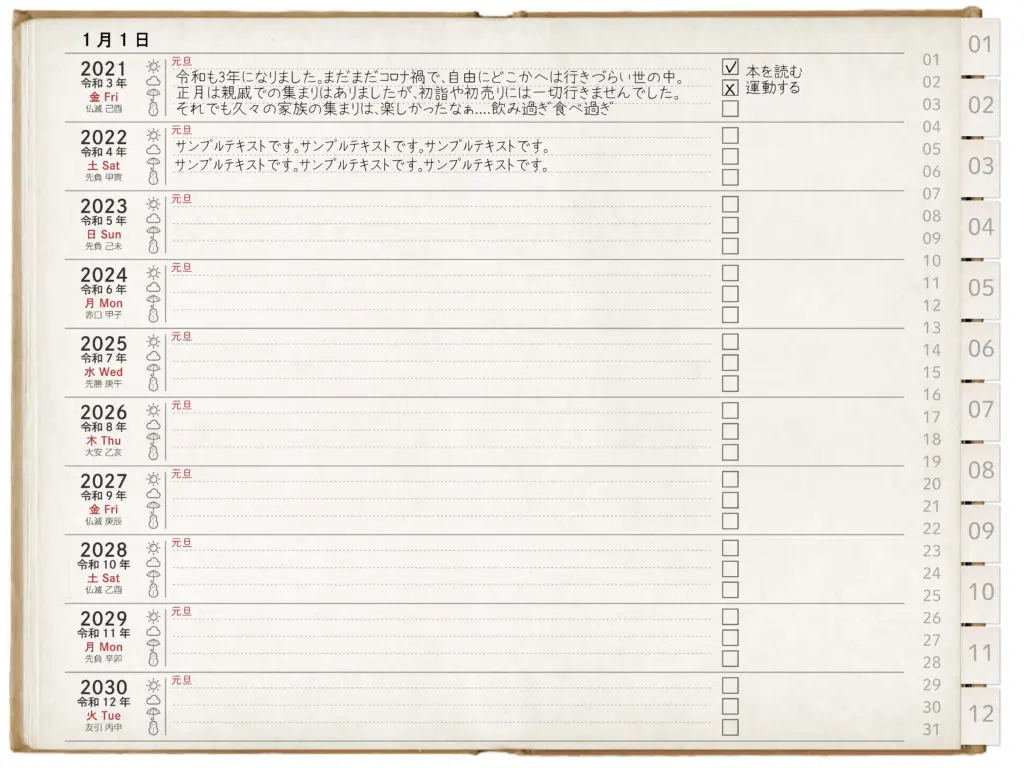 1月1日
2021
令和3年
金 Fri
仏滅 己酉
元旦
令和も3年になりました。まだまだコロナ禍で、自由にどこかへは行きづらい世の中。
正月は親戚での集まりはありましたが、初詣や初売りには一切行きませんでした。
それでも久々の家族の集まりは、楽しかったなぁ....飲み過ぎ食べ過ぎ
本を読む
運動する
2022
令和4年
土 Sat
先負 甲寅
元旦
サンプルテキストです。サンプルテキストです。サンプルテキストです。
サンプルテキストです。サンプルテキストです。サンプルテキストです。
2023
令和5年
日 Sun
先負 己未
元旦
2024
令和6年
月 Mon
赤口 甲子
元旦
2025
令和7年
水 Wed
先勝 庚午
元旦
2026
令和8年
木 Thu
大安 乙亥
元旦
2027
令和9年
金 Fri
仏滅 庚辰
元旦
2028
令和10年
土 Sat
仏滅 乙酉
元旦
2029
令和11年
月 Mon
先負 辛卯
元旦
2030
令和12年
火 Tue
友引 丙申
元旦
01
02
03
04
05
06
07
08
09
10
11
12
13
14
15
16
17
18
19
20
21
22
23
24
25
26
27
28
29
30
31
01
02
03
04
05
06
07
08
09
10
11
12